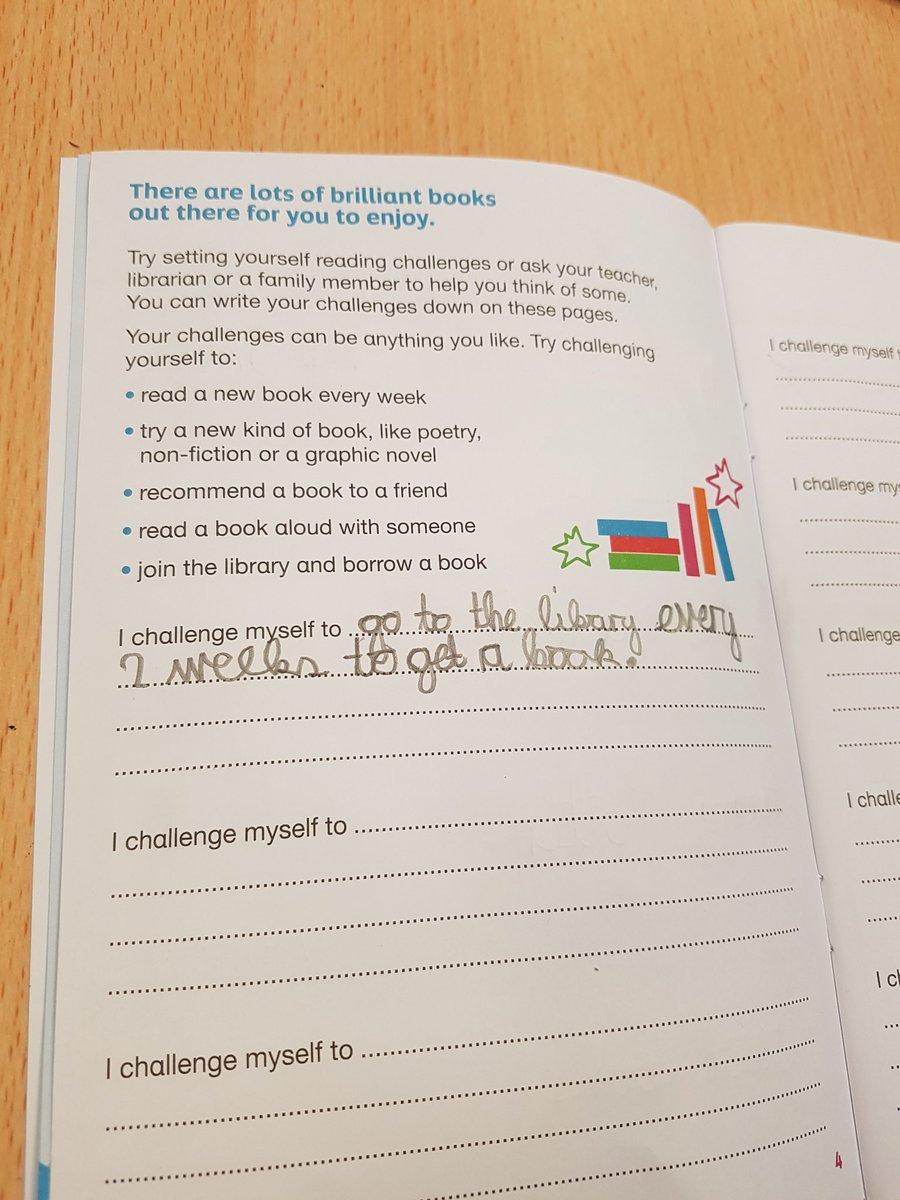 There are lots of brilliant books
out there for you to enjoy.
Try setting yourself reading challenges or ask your teacher,
librarian or a family member to help you think of some.
You can write your challenges down on these pages.
Your challenges can be anything you like. Try challenging
yourself to:
• read a new book every week
• try a new kind of book, like poetry,
non-fiction or a graphic novel
• recommend a book to a friend
• read a book aloud with someone
• join the library and borrow a book
I challenge myself to go to the library every
2 weeks to get a book.
I challenge myself to
I challenge myself to
4
I challenge myself
I challenge
I challenge
I
I